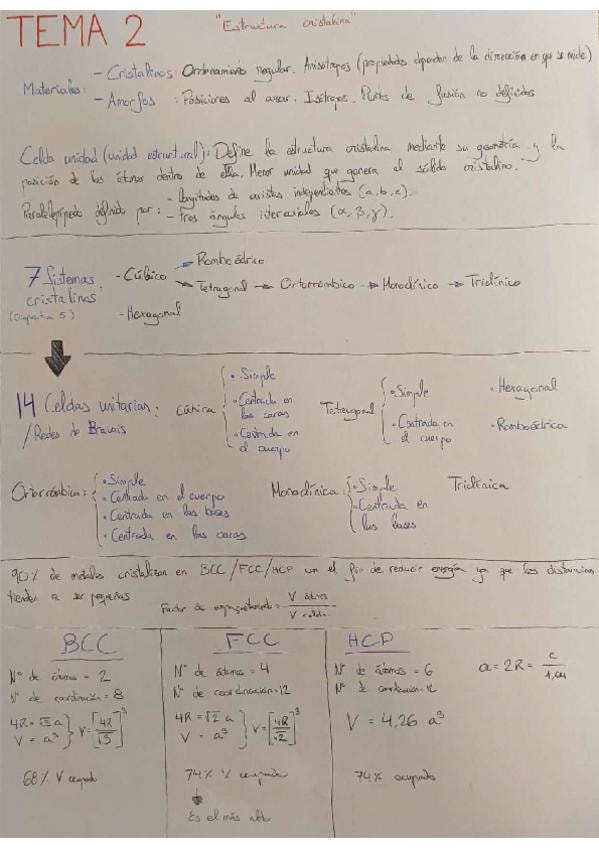 TEMA 2
"Estructura cristalina"
Materiales:
- Cristalinos: Ordenamiento regular. Anisótropos (propiedades dependen de la dirección en que se mide)
- Amorfos : Posiciones al azar. Isótropos. Punto de fusión no definidos
Celda unidad (unidad estructural): Define la estructura cristalina mediante su geometría y la
posición de los átomos dentro de ella. Menor unidad que genera el sólido cristalino.
Paralelepípedo definido por:
- longitudes de aristas independientes (a, b, c).
- tres ángulos interaxiales (α, β, γ).
7 Sistemas
cristalinos
(Diapositiva 5)
- Cúbico → Romboédrico
→ Tetragonal → Ortorrómbico → Monoclínico → Triclínico
- Hexagonal
14 Celdas unitarias:
/Redes de Bravais
Cúbica
• Simple
• Centrada en
las caras
• Centrada en
el cuerpo
Tetragonal
• Simple
• Centrada en
el cuerpo
• Hexagonal
• Romboédrica
Ortorrómbica:
• Simple
• Centrada en el cuerpo
• Centrada en las bases
• Centrada en las caras
Monoclínica:
• Simple
• Centrada en
las bases
Triclínica
90% de metales cristalizan en BCC/FCC/HCP con el fin de reducir energía ya que las distancias
tienden a ser pequeñas
Factor de empaquetamiento = V átomos / V celda
BCC
Nº de átomos = 2
Nº de coordinación = 8
4R = √3 a
V = a³ } V = [4R/√3]³
68% V ocupado
FCC
Nº de átomos = 4
Nº de coordinación = 12
4R = √2 a
V = a³ } V = [4R/√2]³
74% V ocupado
↓
Es el más alto
HCP
Nº de átomos = 6
Nº de coordinación = 12
a = 2R = c/1,64
V = 4,26 a³
74% ocupado